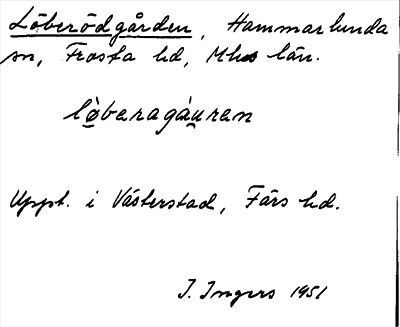 Löberödgården, Hammarlunda
sn, Frosta hd, Mhs län.
lọ̀beragáu̯ren
Uppt. i Västerstad, Färs hd.
I. Ingers 1951